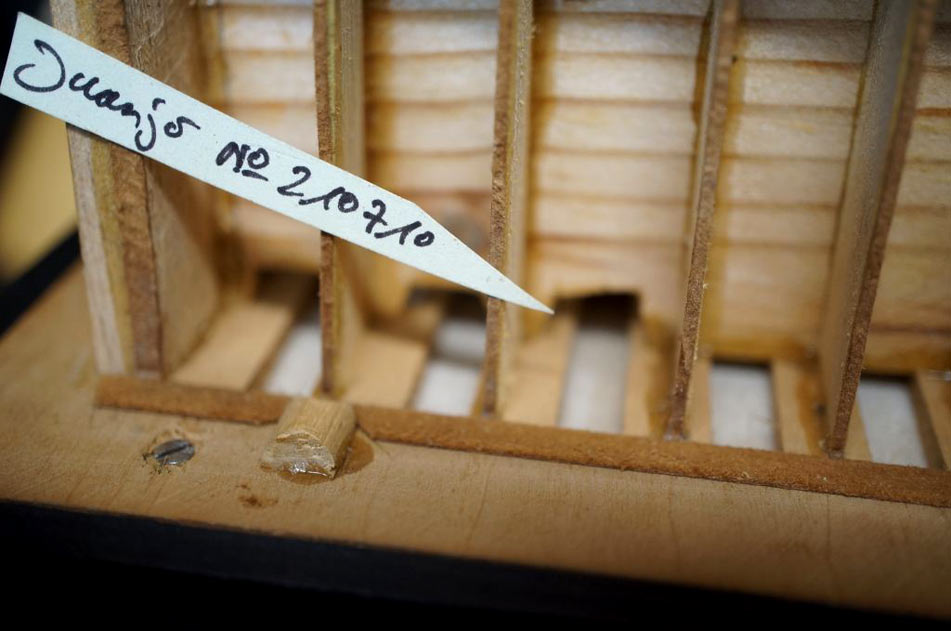 Juanjo Nº 210710